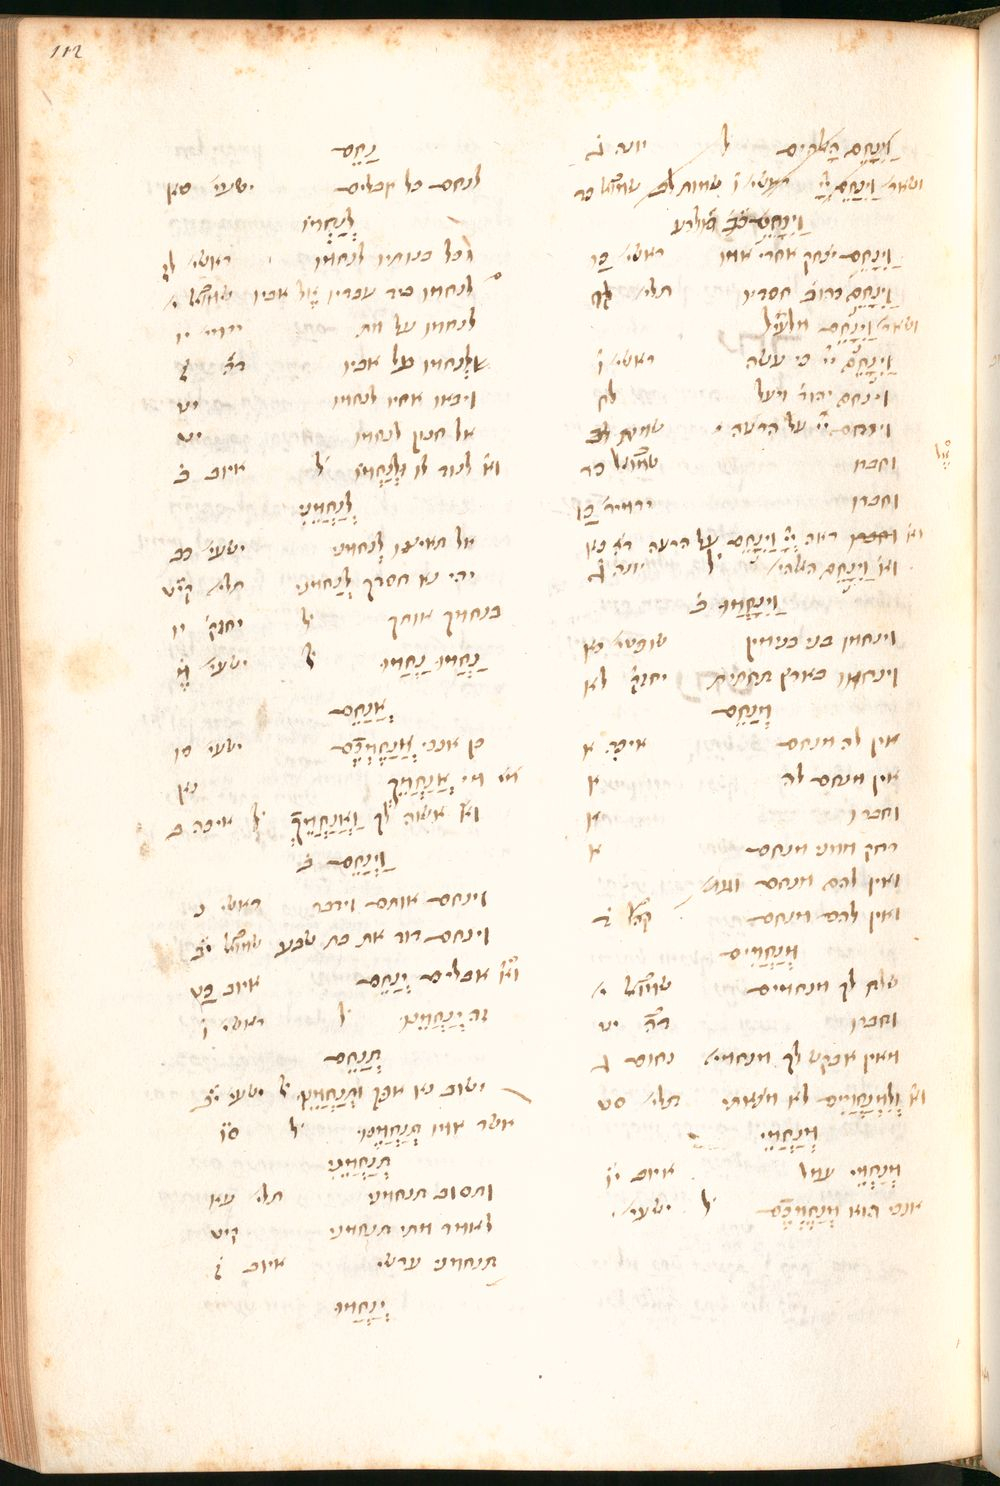 112
וַיִנָּחֶם הָאלהים ל יונה ג
ושאר וַיִנָּחֶם יי ראשי ו שמות לב שמואל כד
וַיִנָּחֵם ב מלרע
וַיִנָּחֵם יצחק אחרי אמו ראשי כד
וַיִנָּחֵם כרוב חסדיו תלי קו
ושאר וַיִנָּחֶם מלעיל
וַיִנָּחֶם יי כי עשה ראשי ו
וינחם יהודה ויעל לח
וינחם יי על הרעה שמות לב
וחברו שמואל כד
וחברו ירמיה כו
וא וחברו ראה יי וַיִנָּחֶם על הרעה דה כא
וא וַיִנָּחֶם האלהי ל יונה ג
וַיִנָּחֲמוּ ב
וינחמו בני בנימין שופטי כא
וינחמו בארץ תחתית יחזק לא
מְנַחֵם
אין לה מנחם איכה א
אין מנחם לה א
וחברו א
רחק ממני מנחם א
ואין להם מנחם
ואין להם מנחם קהל ד
מְנַחֲמִים
שלח לך מנחמים שמואל י
וחברו דה יט
מאין אבקש לך מנחמי נחום ג
וא וְלַמְנַחֲמִים לא מצאתי תלי סט
מְנַחֲמֵי
מְנַחֲמֵי עמל איוב יו
אנכי הוא מְנַחֶמְכֶם ל ישעי
נַחֵם
לנחם כל אבלים ישעי סא
לְנַחֲמוֹ
וכל בנותיו לנחמו ראשי לז
לנחמו ביד עבדיו אל אביו שמואל י
לנחמו על מת ירמי יו
לנחמו על אביו דה
ויבאו אחיו לנחמו יט
אל חנון לנחמו יט
וא לנוד לו וּלְנַחֲמוֹ ל איוב ב
לְנַחֲמֵנִי
אל תאיצו לנחמני ישעי כב
יהי נא חסדך לְנַחֲמֵנִי תלי קיט
בנחמך אותך ל יחזק יו
נַחֲמוּ נַחֲמוּ ל ישעי מ
אֲנַחֵם
כן אנכי אֲנַחֶמְכֶם ישעי סו
מי אֲנַחֲמֵךְ נא
וא אשוה לך וַאֲנַחֲמֵךְ ל איכה ב
וַיְנַחֵם ב
וינחם אותם וידבר ראשי נ
וינחם דוד את בת שבע שמואל יב
וא אבלים יְנַחֵם איוב כט
זה יְנַחֲמֵנוּ ל ראשי ו
תְנַחֵם
ישוב נא אפך וּתְנַחֲמֵנִי ל ישעי יב
אשר אמו תְנַחֲמֶנוּ ל סו
תְנַחֲמֵנִי
ותסוב תנחמני תלי עא
לאמר מתי תנחמני קיט
תנחמני ערשי איוב ז
יְנַחֲמוּ